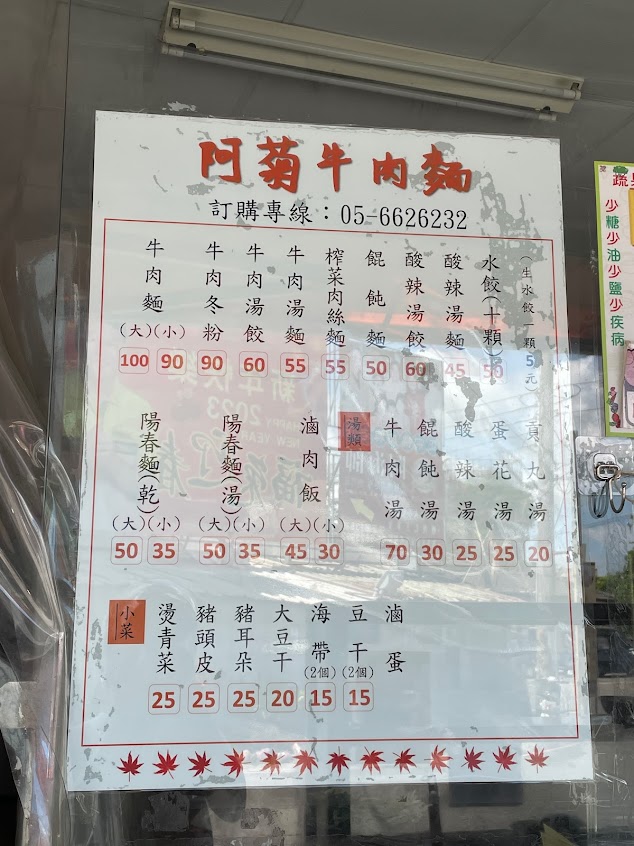 阿菊牛肉麵
訂購專線：05-6626232
牛肉麵 (大)(小) 100 90
牛肉冬粉 90
牛肉湯餃 60
牛肉湯麵 55
榨菜肉絲麵 55
餛飩麵 50
酸辣湯餃 60
酸辣湯麵 45
水餃(十顆) 50
(生水餃一顆5元)
陽春麵(乾) (大)(小) 50 35
陽春麵(湯) (大)(小) 50 35
滷肉飯 (大)(小) 45 30
湯類
牛肉湯 70
餛飩湯 30
酸辣湯 25
蛋花湯 25
貢丸湯 20
小菜
燙青菜 25
豬頭皮 25
豬耳朵 25
大豆干 20
海帶(2個) 15
豆干(2個) 15
滷蛋
蔬
少糖少油少鹽少疾病
新年快樂
2023
HAPPY
NEW YEAR